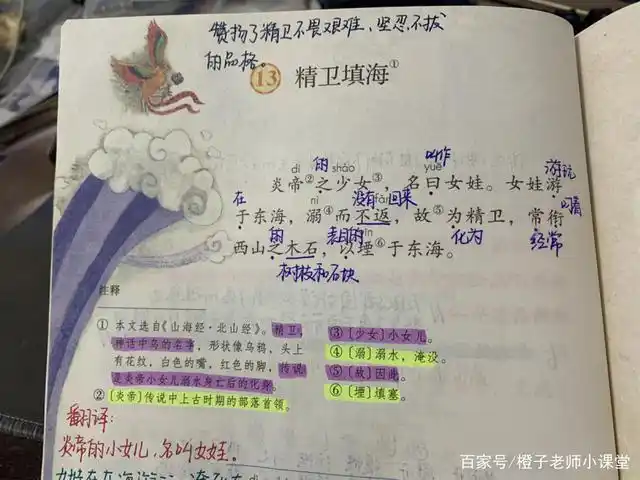 赞扬了精卫不畏艰难、坚忍不拔
的品格。
13 精卫填海①
的 叫作
dì shào yuē 游玩
炎帝②之少女③，名曰女娃。女娃游
在 nì 没有 fǎn 回来 叼着
于东海，溺④而不返，故⑤为精卫，常衔
的 表目的 化为 经常
西山之木石，以堙⑥于东海。
树枝和石块
注释
① 本文选自《山海经·北山经》。精卫，
神话中鸟的名字，形状像乌鸦，头上
有花纹，白色的嘴，红色的脚，传说
是炎帝小女儿溺水身亡后的化身。
② 〔炎帝〕传说中上古时期的部落首领。
③ 〔少女〕小女儿。
④ 〔溺〕溺水，淹没。
⑤ 〔故〕因此。
⑥ 〔堙〕填塞。
翻译：
炎帝的小女儿，名叫女娃。
百家号/橙子老师小课堂